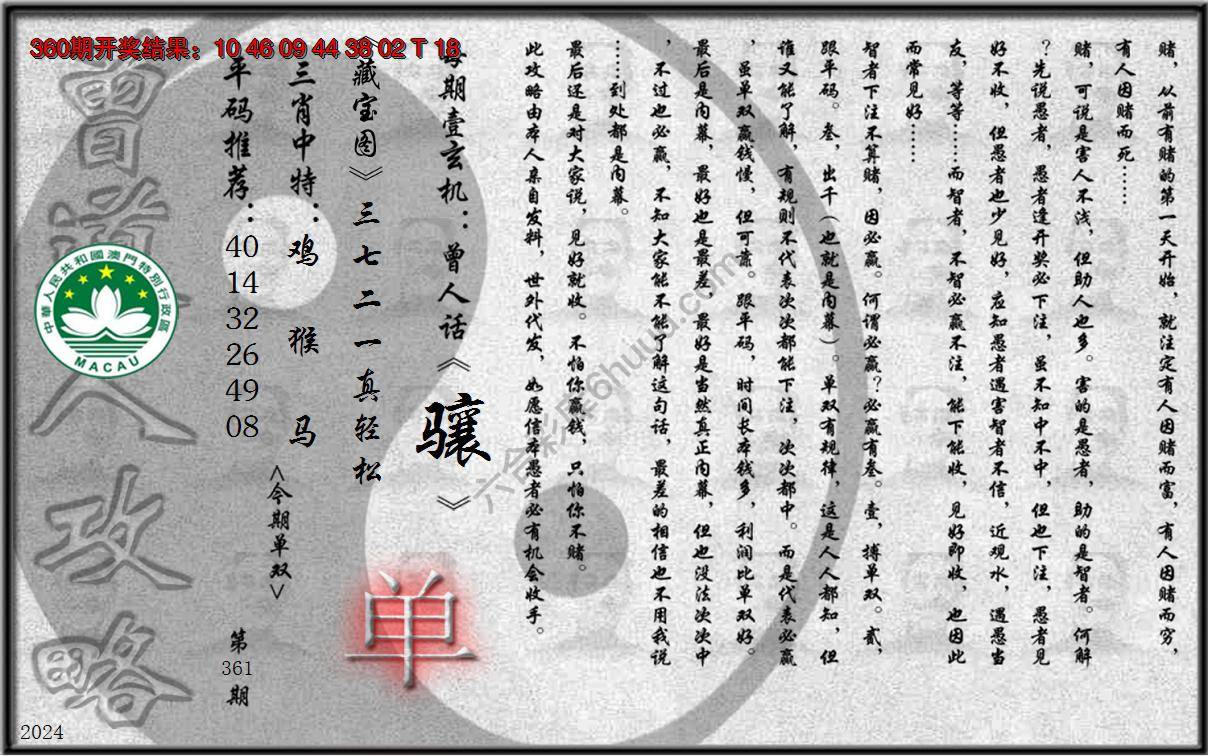 360期开奖结果：10 46 09 44 38 02 T 18
赌，从前有赌的第一天开始，就注定有人因赌而富，有人因赌而穷，
有人因赌而死……
赌，可说是害人不浅，但助人也多。害的是愚者，助的是智者。何解
？先说愚者，愚者逢开奖必下注，虽不知中不中，但也下注，愚者见
好不收，但愚者也少见好，应知愚者遇害智者不信，近观水，遇愚当
友，等等……而智者，不智必赢不注，能下能收，见好即收，也因此
而常见好……
智者下注不算赌，因必赢。何谓必赢？必赢有叁。壹，搏单双。贰，
跟平码。叁，出千（也就是内幕）。单双有规律，这是人人都知，但
谁又能了解，有规则不代表次次都能下注，次次都中。而是代表必赢
，虽单双赢钱慢，但可靠。跟平码，时间长本钱多，利润比单双好。
最后是内幕，最好也是最差，最好是当然真正内幕，但也没法次次中
，不过也必赢，不知大家能不能了解这句话，最差的相信也不用我说
……到处都是内幕。
最后还是对大家说，见好就收。不怕你赢钱，只怕你不赌。
此攻略由本人亲自发料，世外代发，如愿信本愚者必有机会收手。
每期壹玄机：曾人话《骧》
《藏宝图》三七二一真轻松
三肖中特：鸡 猴 马
<今期单双>
单
平码推荐：
40
14
32
26
49
08
第
361
期
曾道人攻略
中華人民共和國澳門特別行政區
MACAU
2024